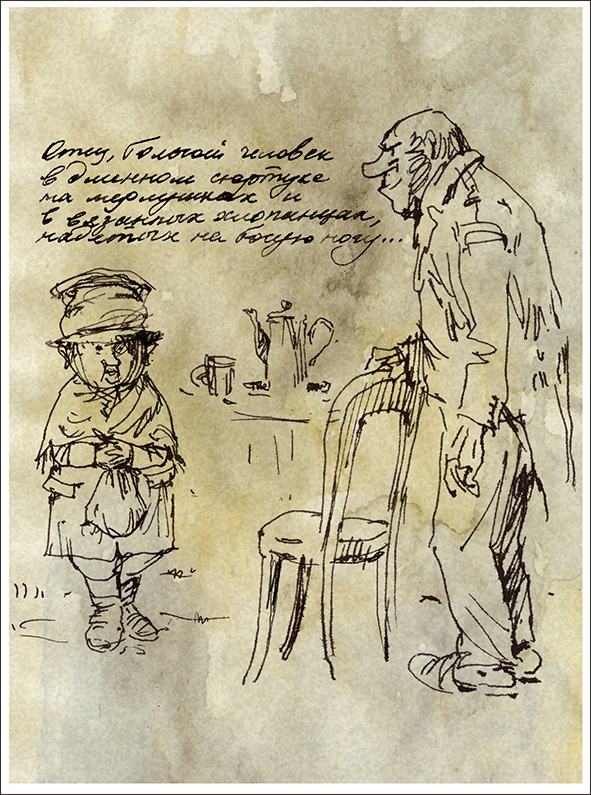 Отец, большой человек
в длинном сюртуке
на мерлушках и
в вязанных хлопанцах,
надетых на босую ногу...